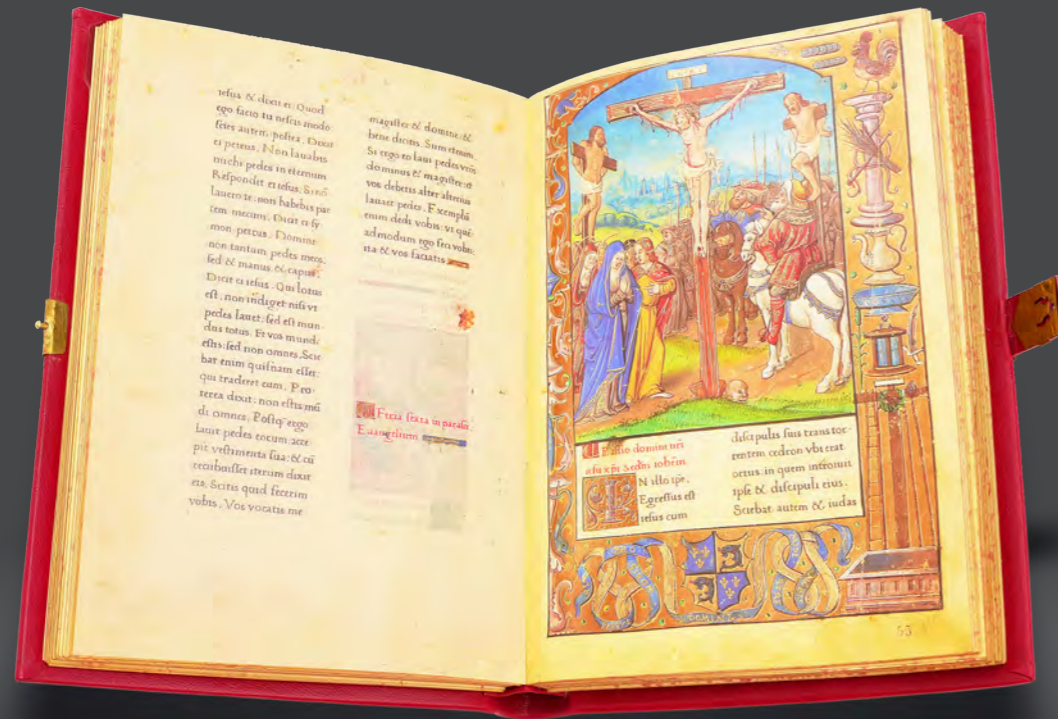 iesus & dicit ei. Quod
ego facio tu nescis modo:
scies autem postea. Dicit
ei petrus. Non lauabis
michi pedes in eternum
Respondit ei iesus. Si nō
lauero te: non habebis par
tem mecum. Dicit ei sy
mon petrus. Domine
non tantum pedes meos.
sed & manus & caput.
Dicit ei iesus. Qui lotus
est: non indiget nisi vt
pedes lauet: sed est mun
dus totus. Et vos mundi
estis: sed non omnes. Scie
bat enim quisnam esset:
qui traderet eum. Pro
terea dixit: non estis mū
di omnes. Postq̄ ergo
lauit pedes eorum: acce
pit vestimenta sua: & cū
recubuisset iterum dixit
eis. Scitis quid fecerim
vobis. Vos vocatis me
magister & domine: &
bene dicitis. Sum etenim.
Si ergo ego laui pedes vr̄os
dominus & magister: &
vos debetis alter alterius
lauare pedes. Exemplū
enim dedi vobis: vt que
admodum ego feci vobis:
ita & vos faciatis
Feria sexta in parasce.
Euangelium
Passio domini nr̄i
iesu xp̄i Secdm iohēm
IN illo tp̄e.
Egressus est
iesus cum
discipulis suis trans tor
rentem cedron vbi erat
ortus: in quem introiuit
ipse & discipuli eius.
Sciebat autem & iudas
55